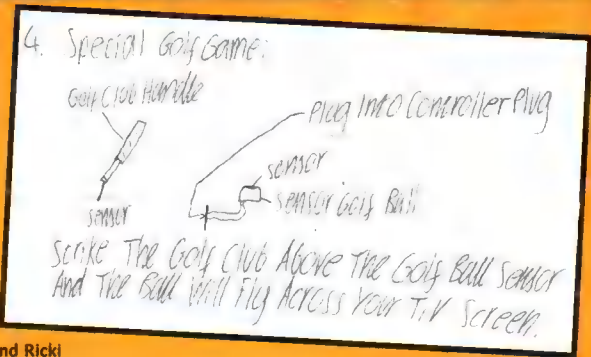 4. Special Golf Game:
Golf Club Handle
Plug Into Controller Plug
sensor
sensor Golf Ball
sensor
Strike The Golf Club Above The Golf Ball Sensor
And The Ball Will Fly Across Your T.V Screen.
nd Ricki